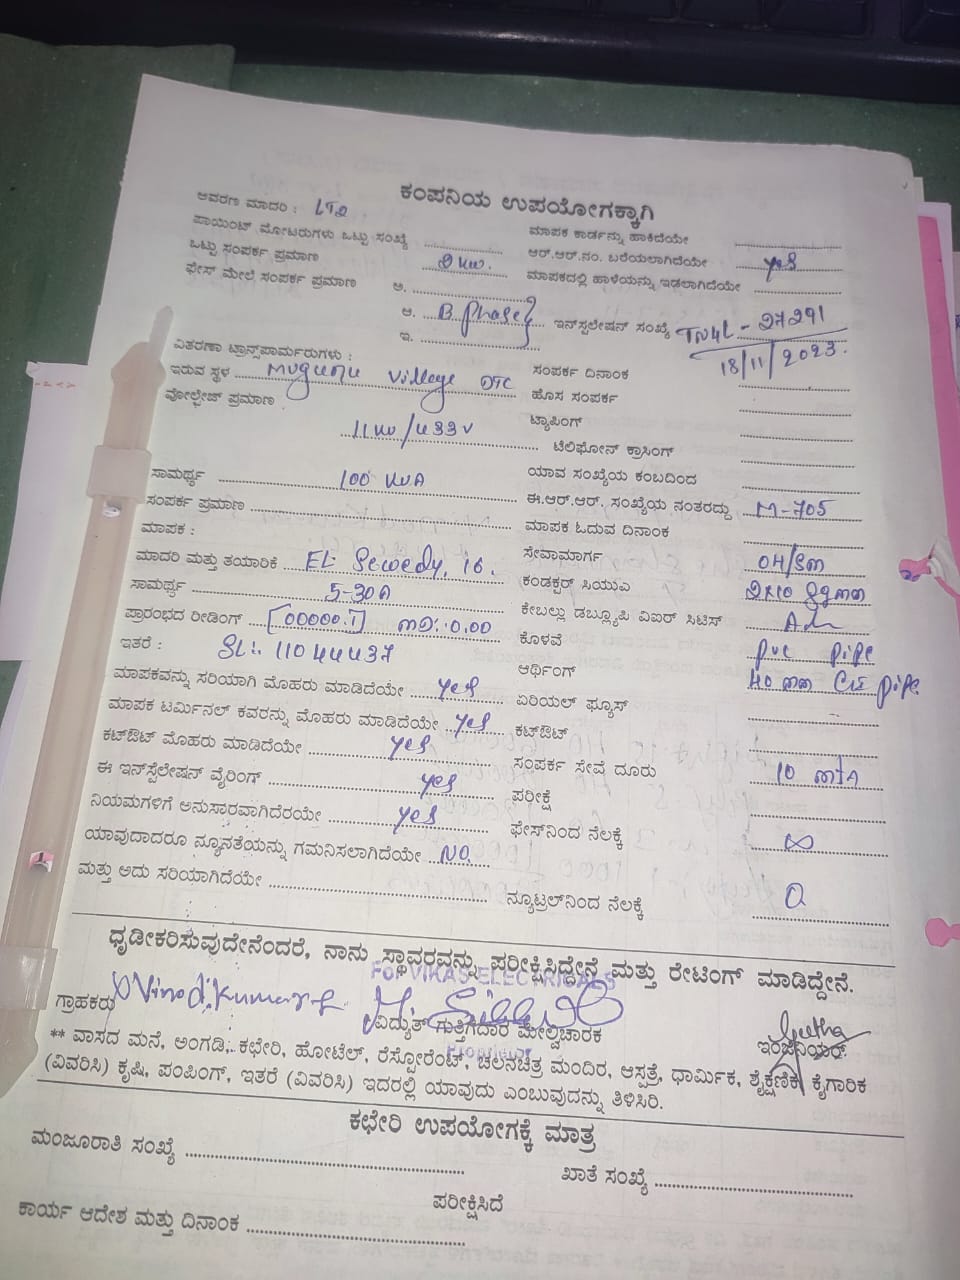 ಕಂಪನಿಯ ಉಪಯೋಗಕ್ಕಾಗಿ
ಆವರಣ ಮಾದರಿ : LT2
ಪಾಯಿಂಟ್ ಮೋಟರುಗಳು ಒಟ್ಟು ಸಂಖ್ಯೆ ಮಾಪಕ ಕಾರ್ಡನ್ನು ಹಾಕಿದೆಯೇ
ಒಟ್ಟು ಸಂಪರ್ಕ ಪ್ರಮಾಣ ಆರ್.ಆರ್.ನಂ. ಬರೆಯಲಾಗಿದೆಯೇ yes
ಫೇಸ್ ಮೇಲೆ ಸಂಪರ್ಕ ಪ್ರಮಾಣ ಅ. ಮಾಪಕದಲ್ಲಿ ಹಾಳೆಯನ್ನು ಇಡಲಾಗಿದೆಯೇ
ಆ. B Phase ಇನ್‌ಸ್ಟಲೇಷನ್ ಸಂಖ್ಯೆ TN4L - 27291
ಇ. 18/11/2023.
ವಿತರಣಾ ಟ್ರಾನ್ಸ್‌ಪಾರ್ಮರುಗಳು :
ಇರುವ ಸ್ಥಳ Village DTC ಸಂಪರ್ಕ ದಿನಾಂಕ
ವೋಲ್ಟೇಜ್ ಪ್ರಮಾಣ ಹೊಸ ಸಂಪರ್ಕ
ಟ್ಯಾಪಿಂಗ್
ಟೆಲಿಫೋನ್ ಕ್ರಾಸಿಂಗ್
ಸಾಮರ್ಥ್ಯ 100 KVA ಯಾವ ಸಂಖ್ಯೆಯ ಕಂಬದಿಂದ
ಸಂಪರ್ಕ ಪ್ರಮಾಣ ಈ.ಆರ್.ಆರ್. ಸಂಖ್ಯೆಯ ನಂತರದ್ದು M-705
ಮಾಪಕ : ಮಾಪಕ ಓದುವ ದಿನಾಂಕ
ಮಾದರಿ ಮತ್ತು ತಯಾರಿಕೆ EL Sewedy, ಸೇವಾಮಾರ್ಗ
ಸಾಮರ್ಥ್ಯ 5-30A ಕಂಡಕ್ಟರ್ ಸಿಯುಎ
ಪ್ರಾರಂಭದ ರೀಡಿಂಗ್ [00000.1] ಕೇಬಲ್ಲು ಡಬ್ಲ್ಯೂಪಿ ವಿಐರ್ ಸಿಟಿಸ್
ಇತರೆ : SL:. 11044437 ಕೊಳವೆ PVC pipe
ಮಾಪಕವನ್ನು ಸರಿಯಾಗಿ ಮೊಹರು ಮಾಡಿದೆಯೇ yes ಆರ್ಥಿಂಗ್ pipe
ಮಾಪಕ ಟರ್ಮಿನಲ್ ಕವರನ್ನು ಮೊಹರು ಮಾಡಿದೆಯೇ yes ಏರಿಯಲ್ ಫ್ಯೂಸ್
ಕಟ್‌ಔಟ್ ಮೊಹರು ಮಾಡಿದೆಯೇ yes ಕಟ್‌ಔಟ್
ಈ ಇನ್‌ಸ್ಟಲೇಷನ್ ವೈರಿಂಗ್ yes ಸಂಪರ್ಕ ಸೇವೆ ದೂರು 10
ನಿಯಮಗಳಿಗೆ ಅನುಸಾರವಾಗಿದೆರಯೇ yes ಪರೀಕ್ಷೆ
ಯಾವುದಾದರೂ ನ್ಯೂನತೆಯನ್ನು ಗಮನಿಸಲಾಗಿದೆಯೇ NO. ಫೇಸ್‌ನಿಂದ ನೆಲಕ್ಕೆ ∞
ಮತ್ತು ಅದು ಸರಿಯಾಗಿದೆಯೇ ನ್ಯೂಟ್ರಲ್‌ನಿಂದ ನೆಲಕ್ಕೆ 0
ಧೃಡೀಕರಿಸುವುದೇನೆಂದರೆ, ನಾನು ಸ್ಥಾವರವನ್ನು ಪರೀಕ್ಷಿಸಿದ್ದೇನೆ ಮತ್ತು ರೇಟಿಂಗ್ ಮಾಡಿದ್ದೇನೆ.
For VIKAS ELECTRICALS
ಗ್ರಾಹಕರು ವಿದ್ಯುತ್ ಗುತ್ತಿಗೆದಾರ ಮೇಲ್ವಿಚಾರಕ Geetha ಇಂಜಿನಿಯರ್
Proprietor
** ವಾಸದ ಮನೆ, ಅಂಗಡಿ, ಕಛೇರಿ, ಹೋಟೆಲ್, ರೆಸ್ಟೋರೆಂಟ್, ಚಲನಚಿತ್ರ ಮಂದಿರ, ಆಸ್ಪತ್ರೆ, ಧಾರ್ಮಿಕ, ಶೈಕ್ಷಣಿಕ, ಕೈಗಾರಿಕ
(ವಿವರಿಸಿ) ಕೃಷಿ, ಪಂಪಿಂಗ್, ಇತರೆ (ವಿವರಿಸಿ) ಇದರಲ್ಲಿ ಯಾವುದು ಎಂಬುವುದನ್ನು ತಿಳಿಸಿರಿ.
ಕಛೇರಿ ಉಪಯೋಗಕ್ಕೆ ಮಾತ್ರ
ಮಂಜೂರಾತಿ ಸಂಖ್ಯೆ ಖಾತೆ ಸಂಖ್ಯೆ
ಪರೀಕ್ಷಿಸಿದೆ
ಕಾರ್ಯ ಆದೇಶ ಮತ್ತು ದಿನಾಂಕ